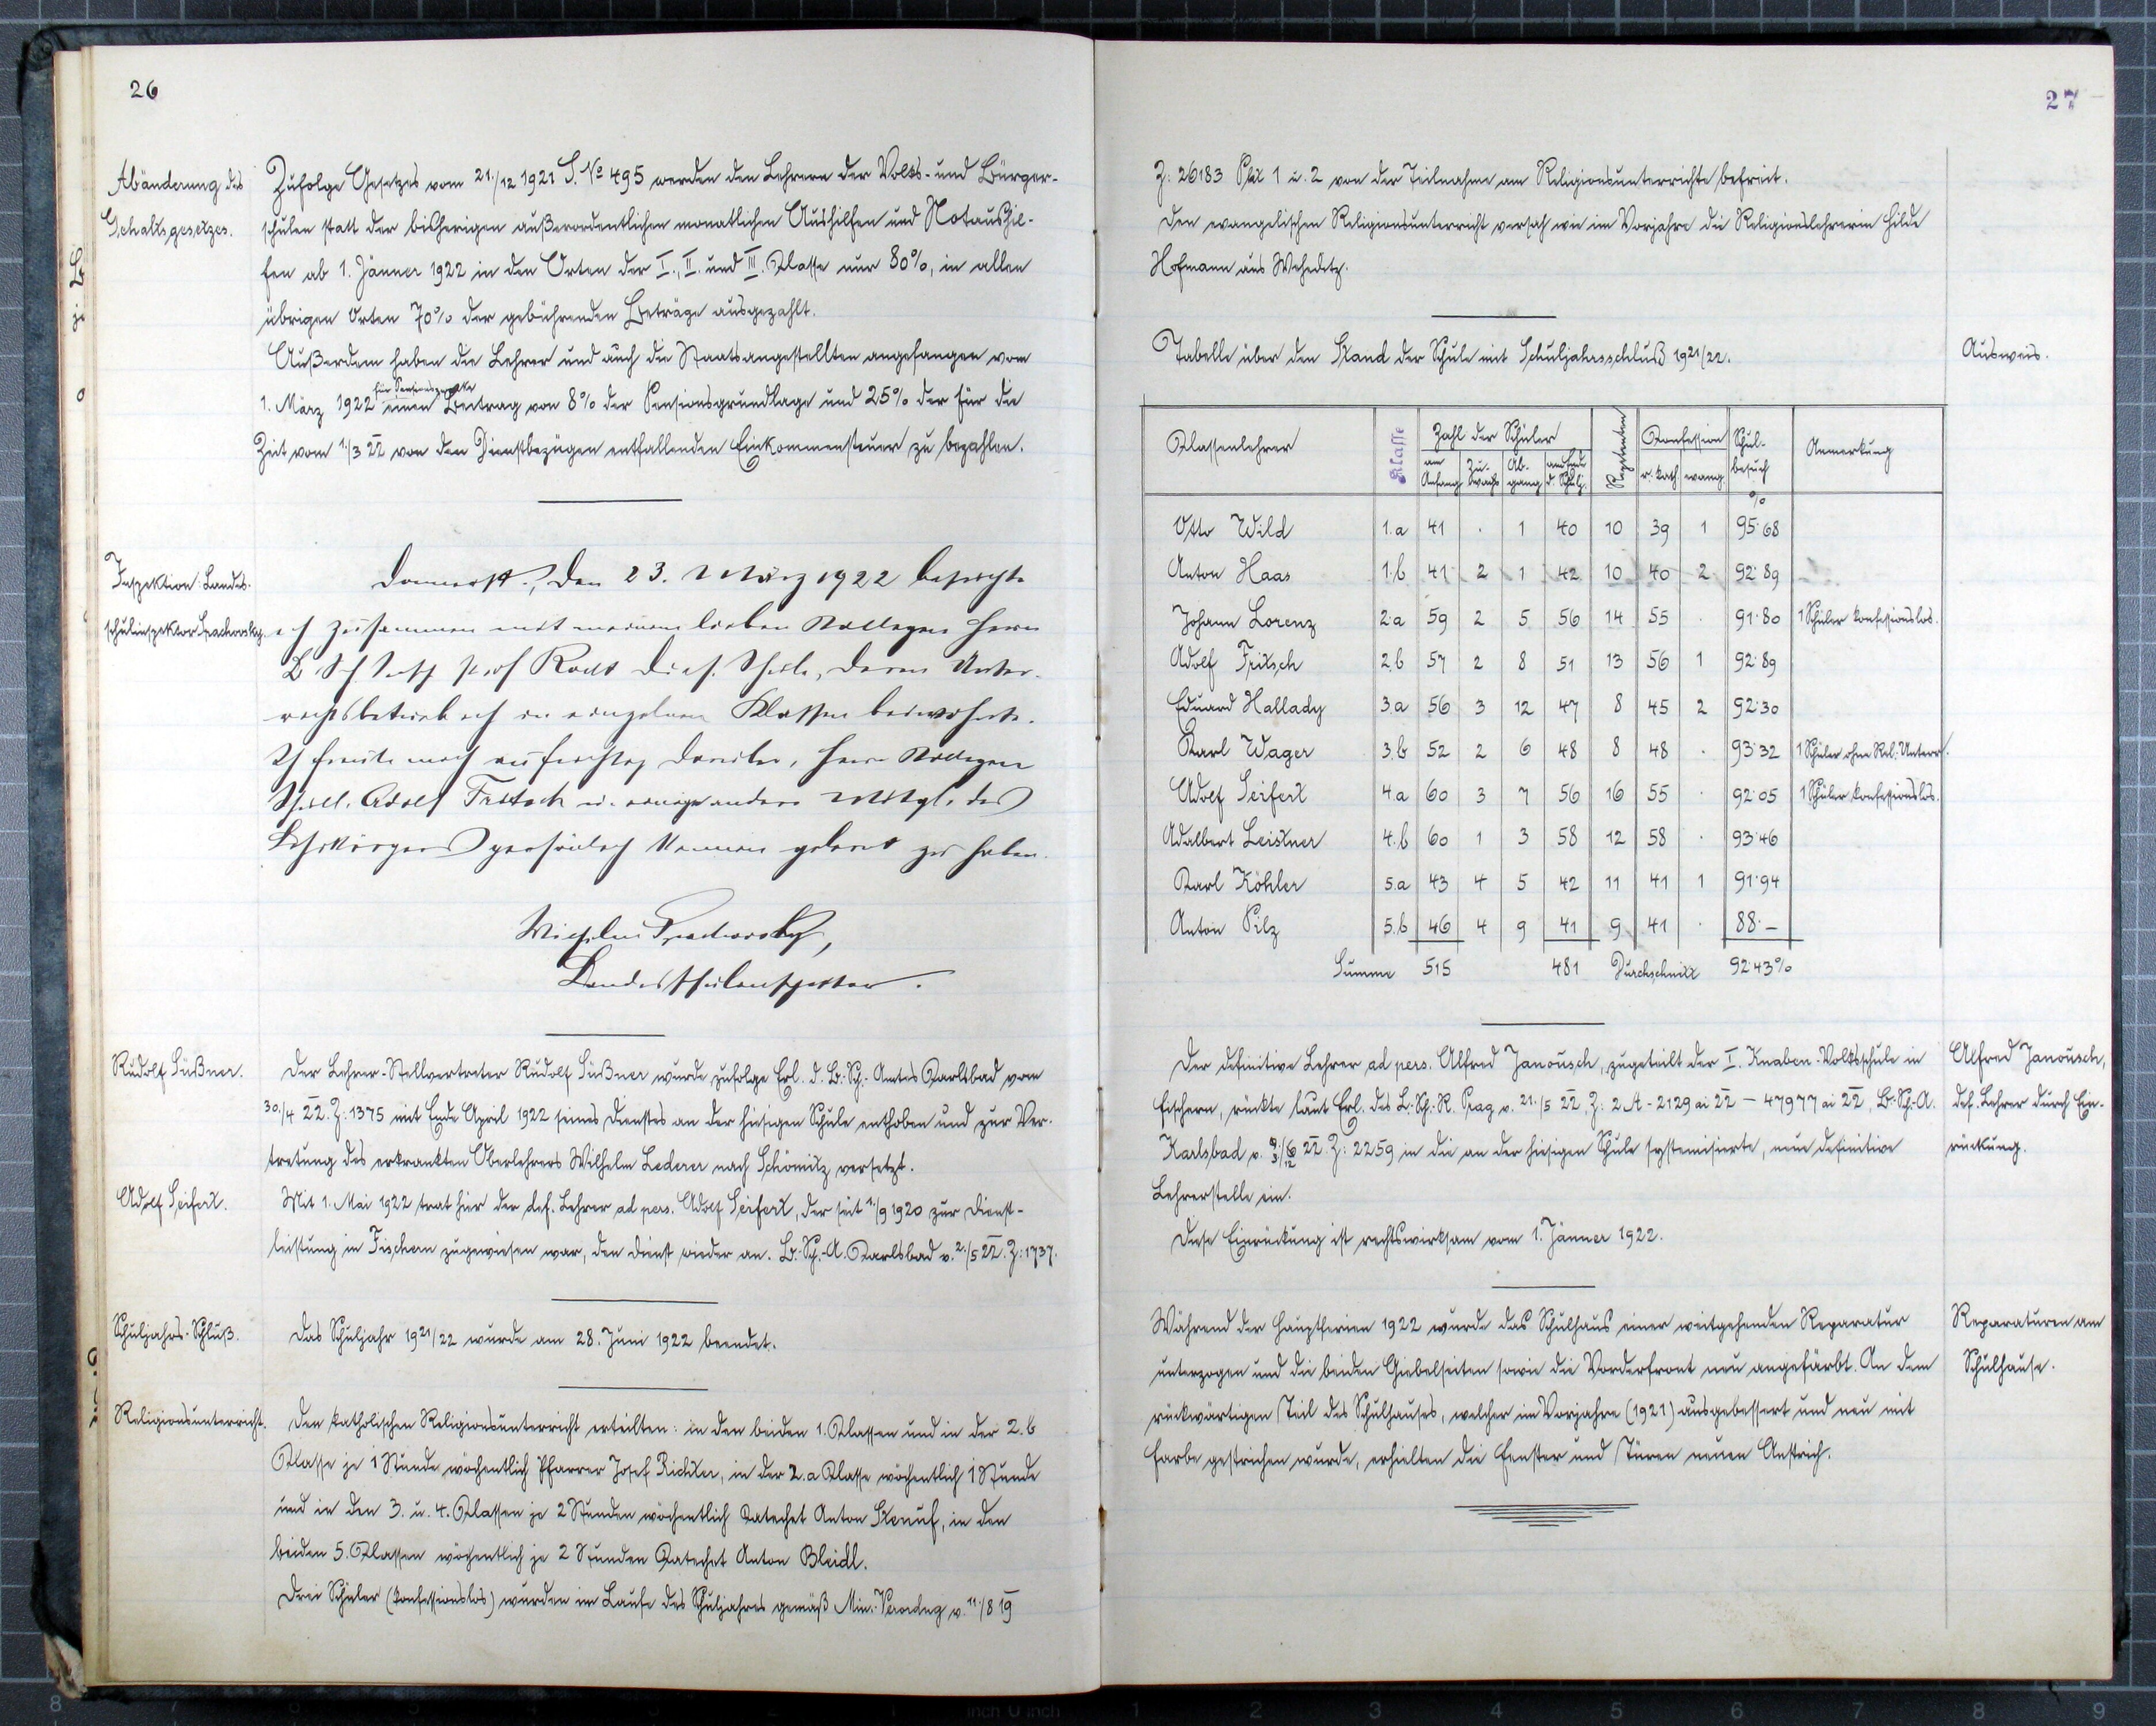 26
Abänderung des
Gehaltsgesetzes.
Zufolge Gesetzes vom 21./12 1921 S. No 495 werden den Lehrern der Volks- und Bürger-
schulen statt der bisherigen außerordentlichen monatlichen Aushilfen und Notaushil-
fen ab 1. Jänner 1922 in den Orten der I., II. und III. Klasse nur 80%, in allen
übrigen Orten 70% der gebührenden Beträge ausgezahlt.
Außerdem haben die Lehrer und auch die Staatsangestellten angefangen vom
für Pensionszwecke
1. März 1922 einen Beitrag von 8% der Pensionsgrundlage und 25% der für die
Zeit vom 1./3 22 von den Dienstbezügen entfallenden Einkommensteuer zu bezahlen.
Inspektion: Landes-
schulinspektor
Donnerst., den 23. März 1922 besuchte
ich zusammen mit meinem lieben Kollegen Herrn
prof die Schule, deren Unter-
richtsbetrieb ich in einzelnen Klassen beiwohnte.
Ich freute mich aufrichtig darüber, Herrn Kollegen
Adolf Fritsch u. einige andere Mitgl. des
Lehrkörpers persönlich kennen gelernt zu haben.
Wilhelm
Landesschulinspektor.
Rudolf Süßner.
Der Lehrer-Stellvertreter Rudolf Süßner wurde zufolge Erl. d. B.-Sch.-Amtes Karlsbad vom
30./4 22. Z: 1375 mit Ende April 1922 seines Dienstes an der hiesigen Schule enthoben und zur Ver-
tretung des erkrankten Oberlehrers Wilhelm Lederer nach Schömitz versetzt.
Adolf Seifert.
Mit 1. Mai 1922 trat hier der def. Lehrer ad pers. Adolf Seifert, der seit 1./9 1920 zur Dienst-
leistung in Fischern zugewiesen war, den Dienst wieder an. B.-Sch.-A. Karlsbad v. 2./5 22. Z: 1737.
Schuljahrs-Schluß.
Das Schuljahr 1921/22 wurde am 28. Juni 1922 beendet.
Religionsunterricht.
Den katholischen Religionsunterricht erteilten: in den beiden 1. Klassen und in der 2. b
Klasse je 1 Stunde wöchentlich Pfarrer Josef Richter, in der 2. a Klasse wöchentlich 1 Stunde
und in den 3. u. 4. Klassen je 2 Stunden wöchentlich Katechet Anton Stenuf, in den
beiden 5. Klassen wöchentlich je 2 Stunden Katechet Anton Bleidl.
Drei Schüler (konfessionslos) wurden im Laufe des Schuljahres gemäß Min.-Verordng v. 11./8 19
27
Z: 26183 Pkt 1 u. 2 von der Teilnahme am Religionsunterrichte befreit.
Den evangelischen Religionsunterricht versah wie im Vorjahre die Religionslehrerin Hilde
Hofmann aus Weheditz.
Tabelle über den Stand der Schule mit Schuljahrsschluß 1921/22.
Ausweis.
Klassenlehrer Klasse Zahl der Schüler Repetenten Konfession Schul-besuch Anmerkung
am Anfang Zu-wachs Ab-gang am Ende d. Schulj. r. kath evang. %
Otto Wild 1. a 41 . 1 40 10 39 1 95·68
Anton Haas 1. b 41 2 1 42 10 40 2 92·89
Johann Lorenz 2. a 59 2 5 56 14 55 . 91·80 1 Schüler konfessionslos.
Adolf Fritsch 2. b 57 2 8 51 13 56 1 92·89
Eduard Hallady 3. a 56 3 12 47 8 45 2 92·30
Karl Wager 3. b 52 2 6 48 8 48 . 93·32 1 Schüler ohne Rel. Unterr.
Adolf Seifert 4. a 60 3 7 56 16 55 . 92·05 1 Schüler konfessionslos.
Adalbert Leistner 4. b 60 1 3 58 12 58 . 93·46
Karl Köhler 5. a 43 4 5 42 11 41 1 91·94
Anton Pilz 5. b 46 4 9 41 9 41 . 88·—
Summe 515 481 Durchschnitt 92·43%
Der definitive Lehrer ad pers. Alfred Janousch, zugeteilt der I. Knaben-Volksschule in
Fischern, rückte laut Erl. des L.-Sch.-R. Prag v. 21./5 22, Z: 2 A - 2129 ai 22 — 47977 ai 22, B.-Sch.-A.
Karlsbad v. 22. Z: 2259 in die an der hiesigen Schule systemisierte, neue definitive
Lehrerstelle ein.
Diese Einrückung ist rechtswirksam vom 1. Jänner 1922.
Alfred Janousch,
def. Lehrer durch Ein-
rückung.
Während der Hauptferien 1922 wurde das Schulhaus einer weitgehenden Reparatur
unterzogen und die beiden Giebelseiten sowie die Vorderfront neu angefärbt. An dem
rückwärtigen Teil des Schulhauses, welcher im Vorjahre (1921) ausgebessert und neu mit
Farbe gestrichen wurde, erhielten die Fenster und Türen neuen Anstrich.
Reparaturen am
Schulhause.